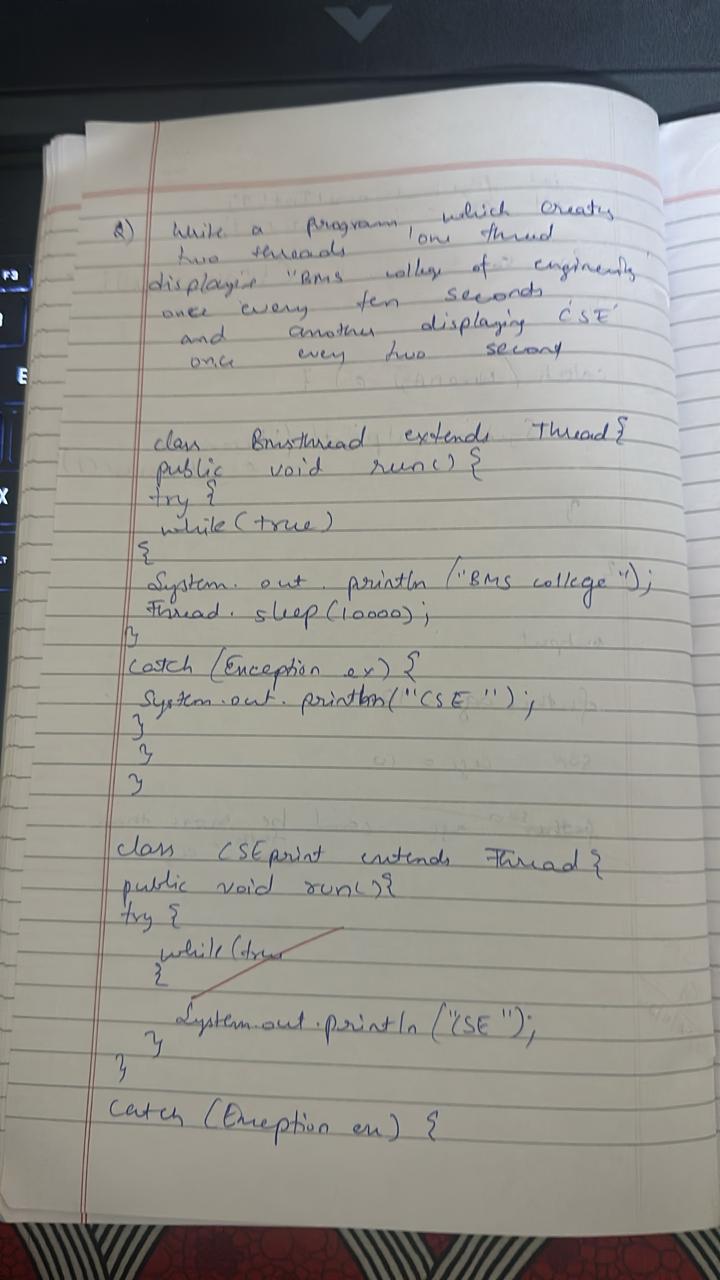 Q) Write a program which creates
two threads 'one thread
displaying "BMS college of engineering
once every ten seconds
and another displaying 'CSE'
once every two second
class Bmsthread extends Thread {
public void run() {
try {
while (true)
{
System. out. println ("BMS college");
Thread. sleep (10000);
}
catch (Exception ex) {
System.out. println("CSE");
}
}
}
class CSEprint extends Thread {
public void run() {
try {
while (true
{
System.out.println ("CSE");
}
}
catch (Exception ex) {